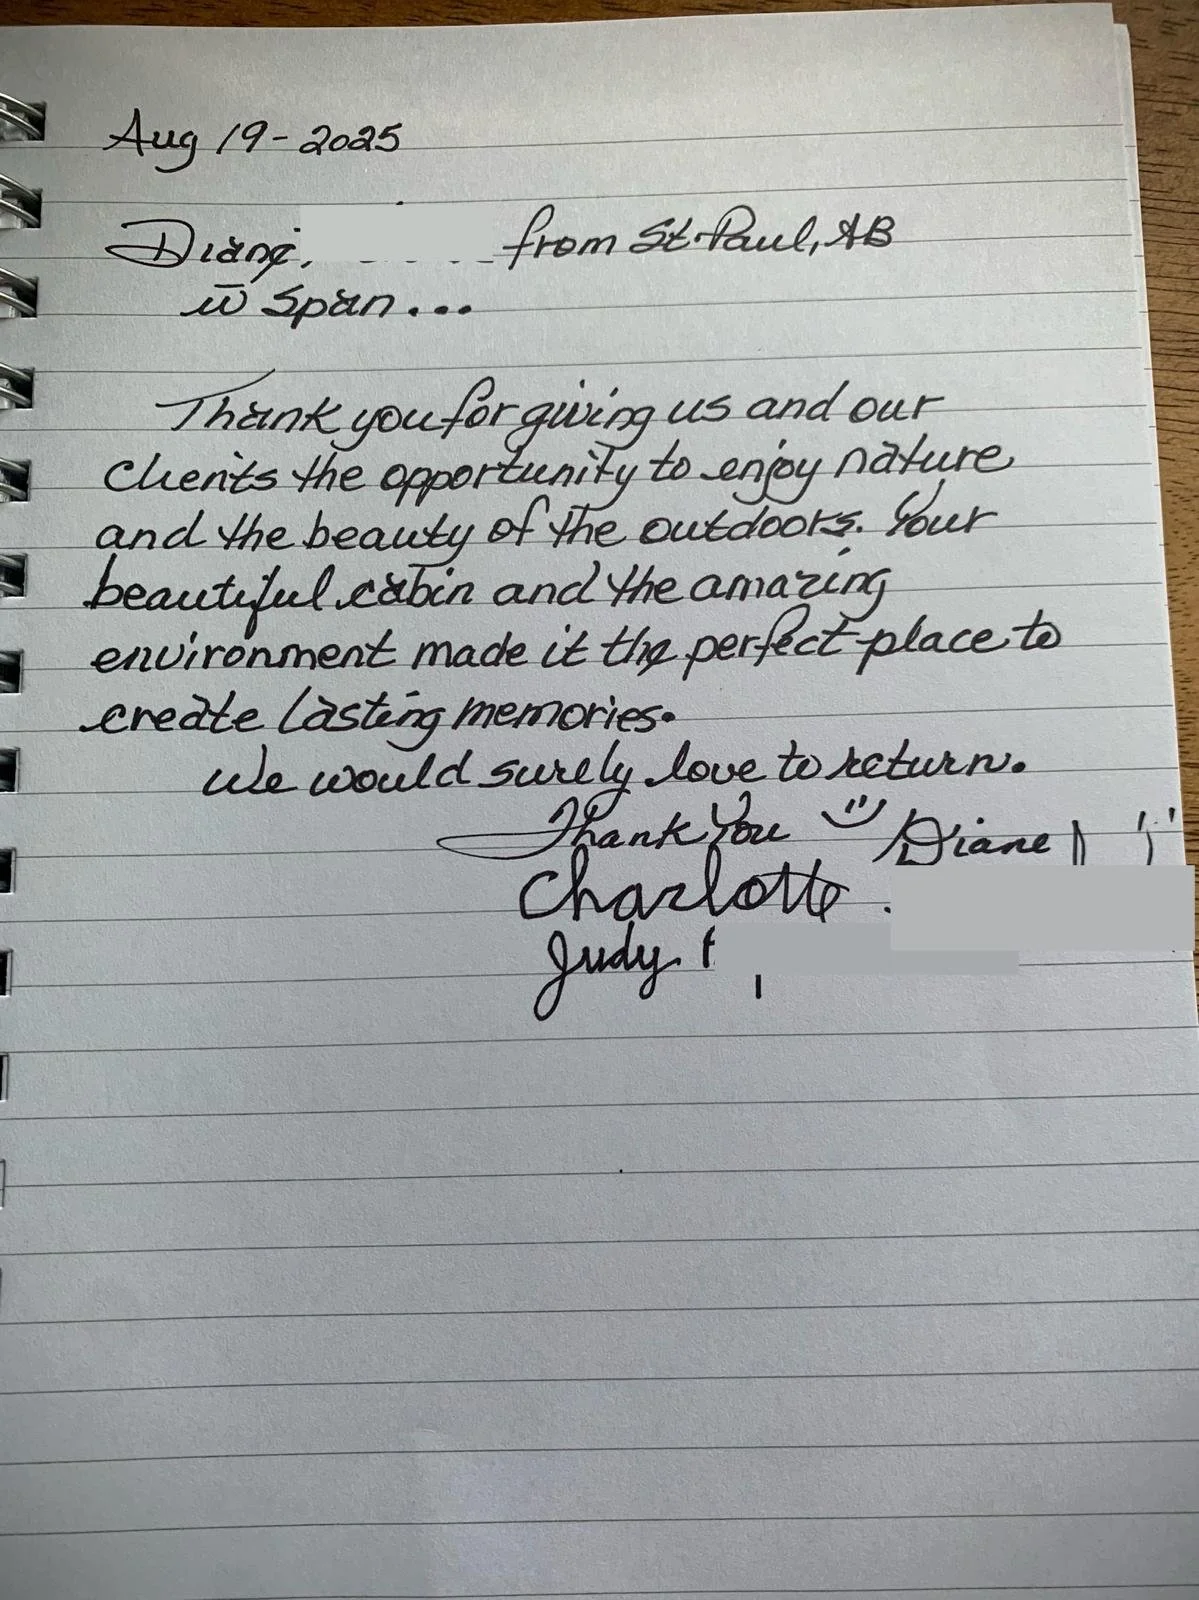 Aug 19-2025
Diane, from St. Paul, AB
w̄ Span...
Thank you for giving us and our
clients the opportunity to enjoy nature
and the beauty of the outdoors. Your
beautiful cabin and the amazing
environment made it the perfect place to
create lasting memories.
We would surely love to return.
Thank You Diane
Charlotte
Judy